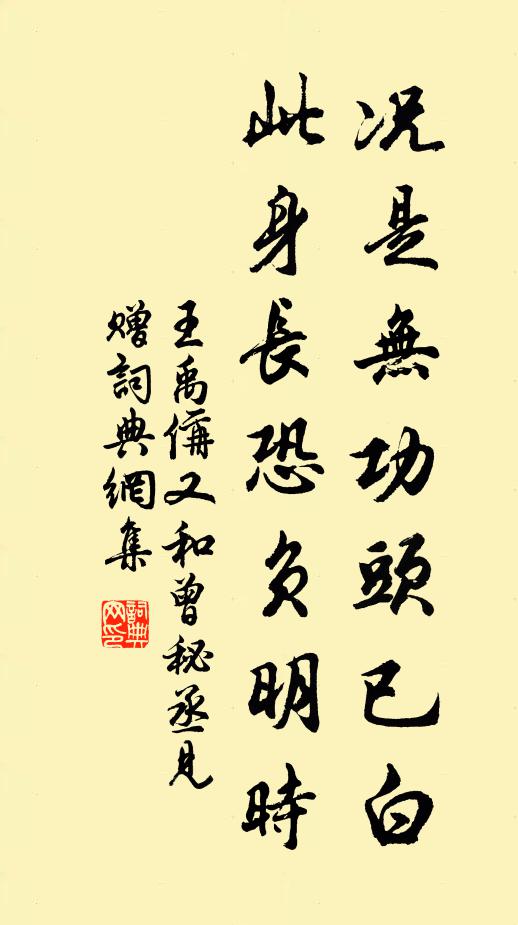 况是無功頭已白
此身長恐負明時
王禹偁又和曾秘丞見
贈詞典網集
詞典
网印